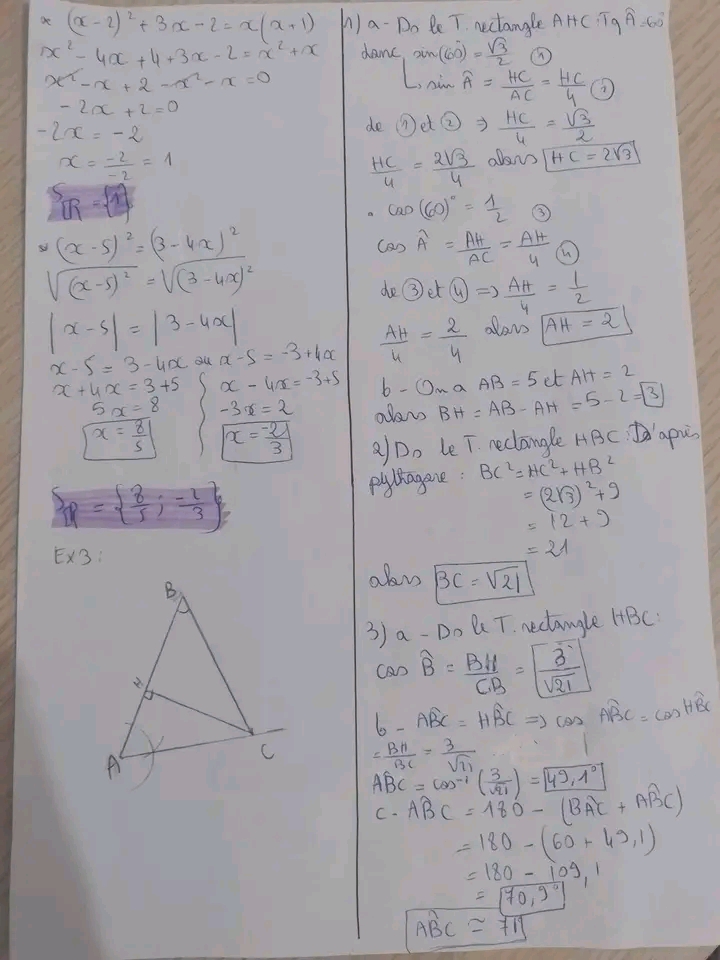 * (x-2)² + 3x - 2 = x(x+1)
x² - 4x + 4 + 3x - 2 = x² + x
x² - x + 2 - x² - x = 0
- 2x + 2 = 0
- 2x = - 2
x = -2/-2 = 1
S_IR = {1}
* (x-5)² = (3-4x)²
√(x-5)² = √(3-4x)²
|x-5| = |3-4x|
x-5 = 3-4x ou x-5 = -3+4x
x+4x = 3+5 { x - 4x = -3+5
5x = 8 { -3x = 2
x = 8/5 { x = -2/3
S_IR = {8/5 ; -2/3}
Ex3:
B
H
A
C
1) a - Ds le T. rectangle AHC : Tq Â = 60°
donc sin(60°) = √3/2 ①
sin Â = HC/AC = HC/4 ②
de ① et ② ⇒ HC/4 = √3/2
HC/4 = 2√3/4 alors HC = 2√3
• cos(60)° = 1/2 ③
cos Â = AH/AC = AH/4 ④
de ③ et ④ ⇒ AH/4 = 1/2
AH/4 = 2/4 alors AH = 2
b - On a AB = 5 et AH = 2
alors BH = AB - AH = 5 - 2 = 3
2) Ds le T. rectangle HBC : D'après
pythagore : BC² = HC² + HB²
= (2√3)² + 9
= 12 + 9
= 21
alors BC = √21
3) a - Ds le T. rectangle HBC :
cos B̂ = BH/CB = 3/√21
b - AB̂C = HB̂C ⇒ cos AB̂C = cos HB̂C
= BH/BC = 3/√21
AB̂C = cos⁻¹(3/√21) = 49,1°
c - AB̂C = 180 - (BÂC + AB̂C)
= 180 - (60 + 49,1)
= 180 - 109,1
= 70,9°
AB̂C ≃ 71